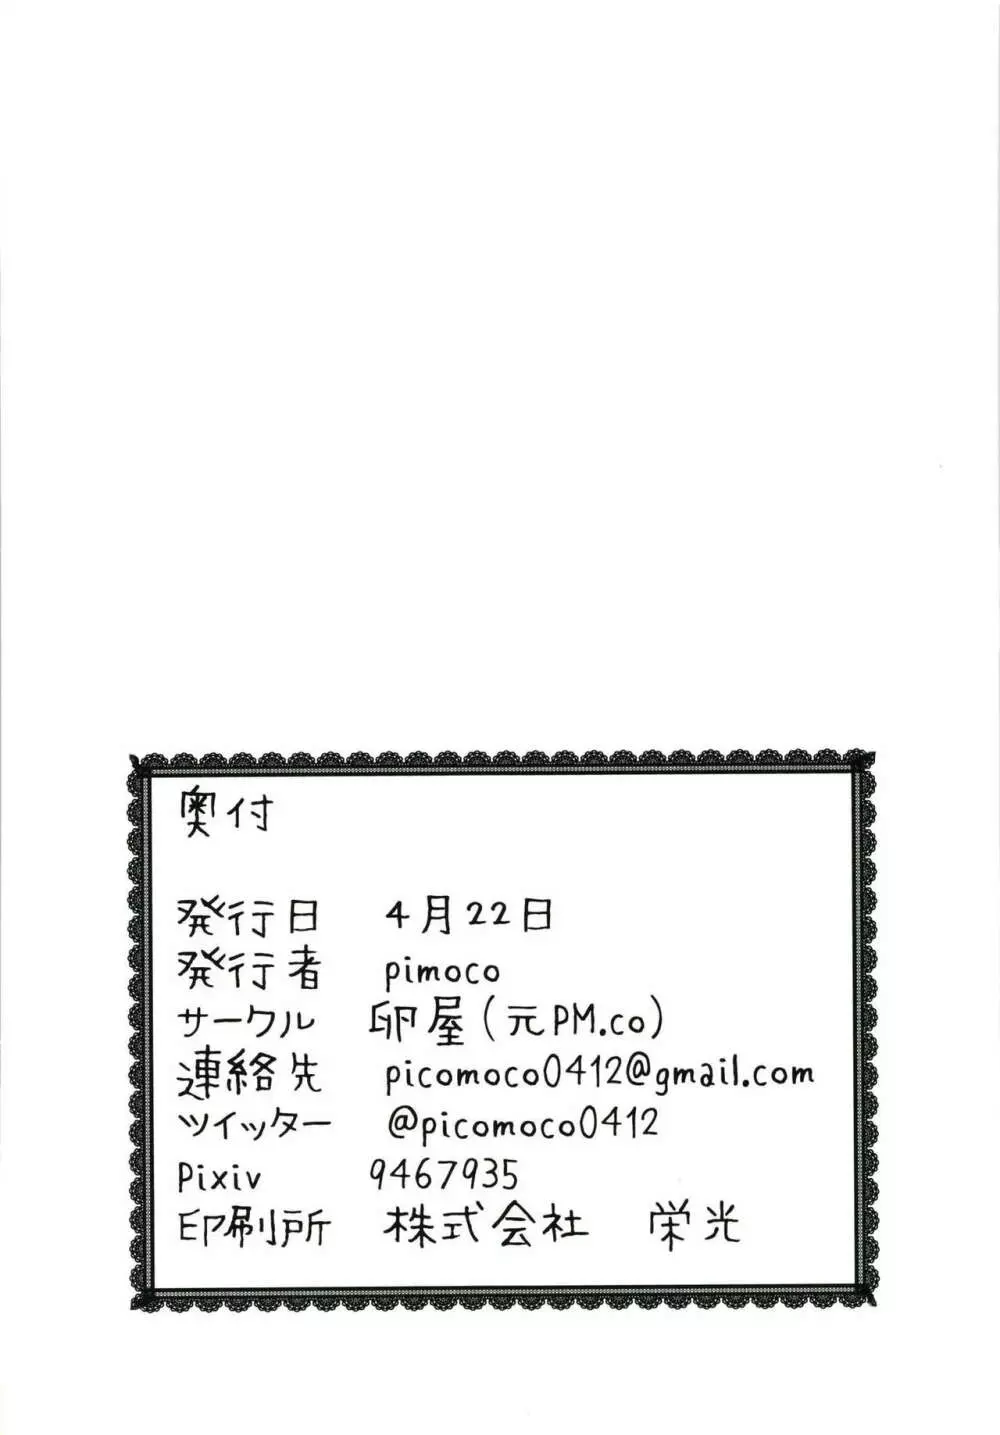 奥付
発行日 4月22日
発行者 pimoco
サークル 卵屋(元PM.co)
連絡先 picomoco0412@gmail.com
ツイッター @picomoco0412
Pixiv 9467935
印刷所 株式会社 栄光